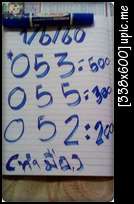 1/6/60
053=500
055=300
052=200
[338x600]upic.me